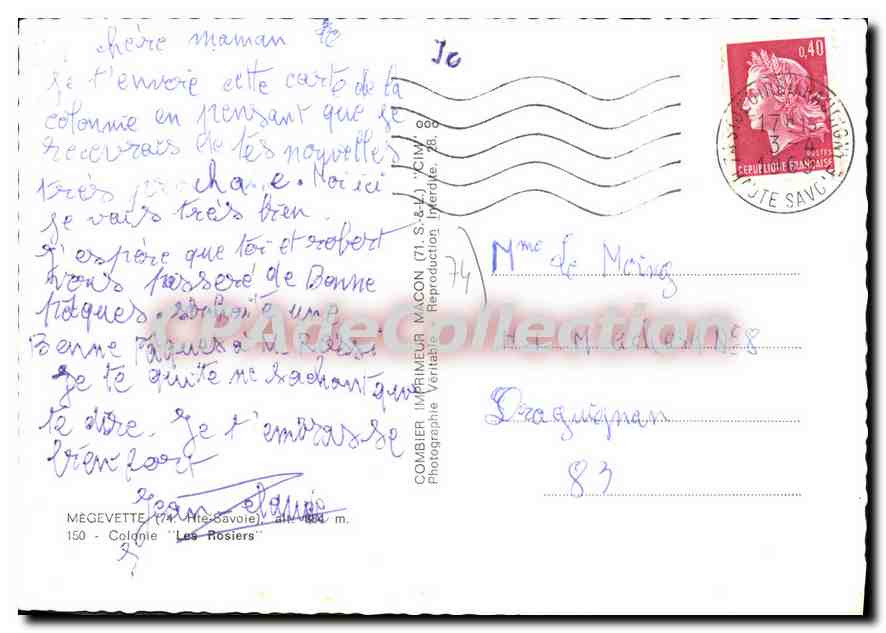 chère maman
Je t'envoie cette carte de la
colonnie en pensant que je
recevrais de tes nouvelles
très prochane. Moi ici
je vais très bien.
J'espère que toi et robert
vous passeré de Bonne
pâques. une
Bonne Pâques à
Je te quite ne sachant que
te dire. Je t'embrasse
bien fort
Jean-claude
MÉGEVETTE (74. Hte-Savoie), alt. m.
150 - Colonie "Les Rosiers"
COMBIER IMPRIMEUR MACON (71. S.-&-L.) "CIM"
Photographie Véritable - Reproduction Interdite. 28.
0,40
POSTES
REPUBLIQUE FRANÇAISE
17H
3 4
HTE SAVOIE
74
Mme de Moing
H L M N°8
Draguignan
83
CPAdeCollection